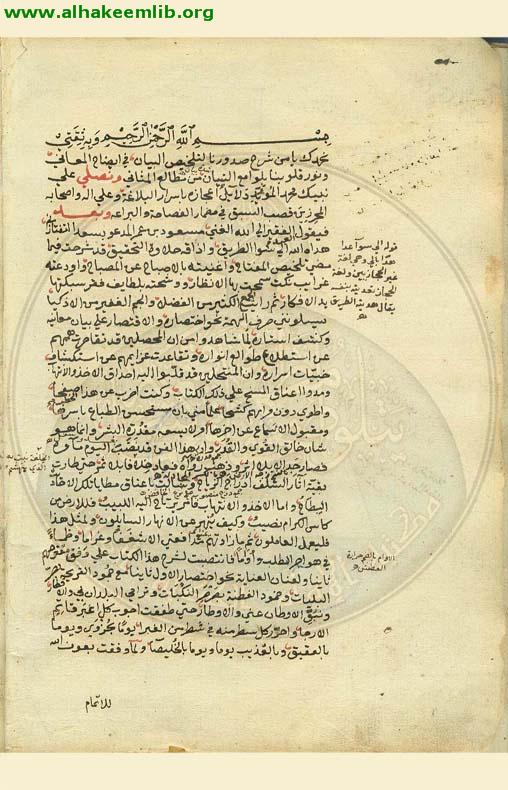 www.alhakeemlib.org
بسم الله الرحمن الرحيم وبه ثقتي
نحمدك يا من شرح صدورنا لتلخيص البيان في ايضاح المعاني
ونور قلوبنا بلوامع التبيان من مطالع المثاني ونصلي على
نبيك محمد المؤيد دلايل اعجازه باسرار البلاغة وعلى اله واصحابه
المحرزين قصب السبق في مضمار الفصاحة والبراعة وبعد
فيقول الفقير الى الله الغني مسعود بن عمر المدعو بسعد التفتازاني
هداه الله الى سوا الطريق واذاقه حلاوة التحقيق قد شرحت فيما
مضى تلخيص المفتاح واغنيته بالاصباح عن المصباح واودعته
غرايب نكت سمحت بها الانظار ووشحته بلطايف فقر سبكتها
يد الافكار ثم رايت الكثير من الفضلا والجم الغفير من الاذكيا
يسيلونني صرف الهمة نحو اختصاره والاقتصار على بيان معانيه
وكشف استاره لما شاهدوا من ان المحصلين قد تقاصرت هممهم
عن استطلاع طوالع انواره وتقاعدت عزايمهم عن استكشاف
خبيات اسراره وان المنتحلين قد قلبوا اليه احداق الاخذ والانتهاب
ومدوا اعناق المسخ على ذلك الكتاب وكنت اضرب عن هذا صفحا
واطوي دون مرامهم كشحا علما مني بان مستحسن الطباع باسرها
ومقبول الاسماع عن اخرها امر لا يسعه مقدرة البشر وانما هو
شان خالق القوى والقدر وان هذا الفن قد نضب اليوم ماوه
فصار جدالا بلا اثر وذهب رواوه فعاد خلافا بلا ثمر حتى طارت
بقية اثار السلف ادراج الرياح وسالت باعناق مطايا تلك الاحاديث
البطاح واما الاخذ والانتهاب فامر يرتاح اليه اللبيب فللارض من
كاس الكرام نصيب وكيف ينهر عن الانهار السايلون ولمثل هذا
فليعمل العاملون ثم ما زادتهم مدافعتي الا شغفا وغراما وظما
في هواجر الطلب واواما فانتصبت لشرح هذا الكتاب على وفق مقترحهم
ثانيا ولعنان العناية نحو اختصار الاول ثانيا مع جمود القريحة بصر
البليات وخمود الفطنة بصرصر النكبات وترامي البلدان بي والاقطار
ونبو الاوطان عني والاوطار حتى طفقت اجوب كل اغبر قاتم
الارجا واحرر كل سطر منه في شطر من الغبرا يوما بحزوى ويوما
بالعقيق وبالعذيب يوما ويوما بالخليصا ولما وفقت بعون الله
للاتمام
قوله الى سوا